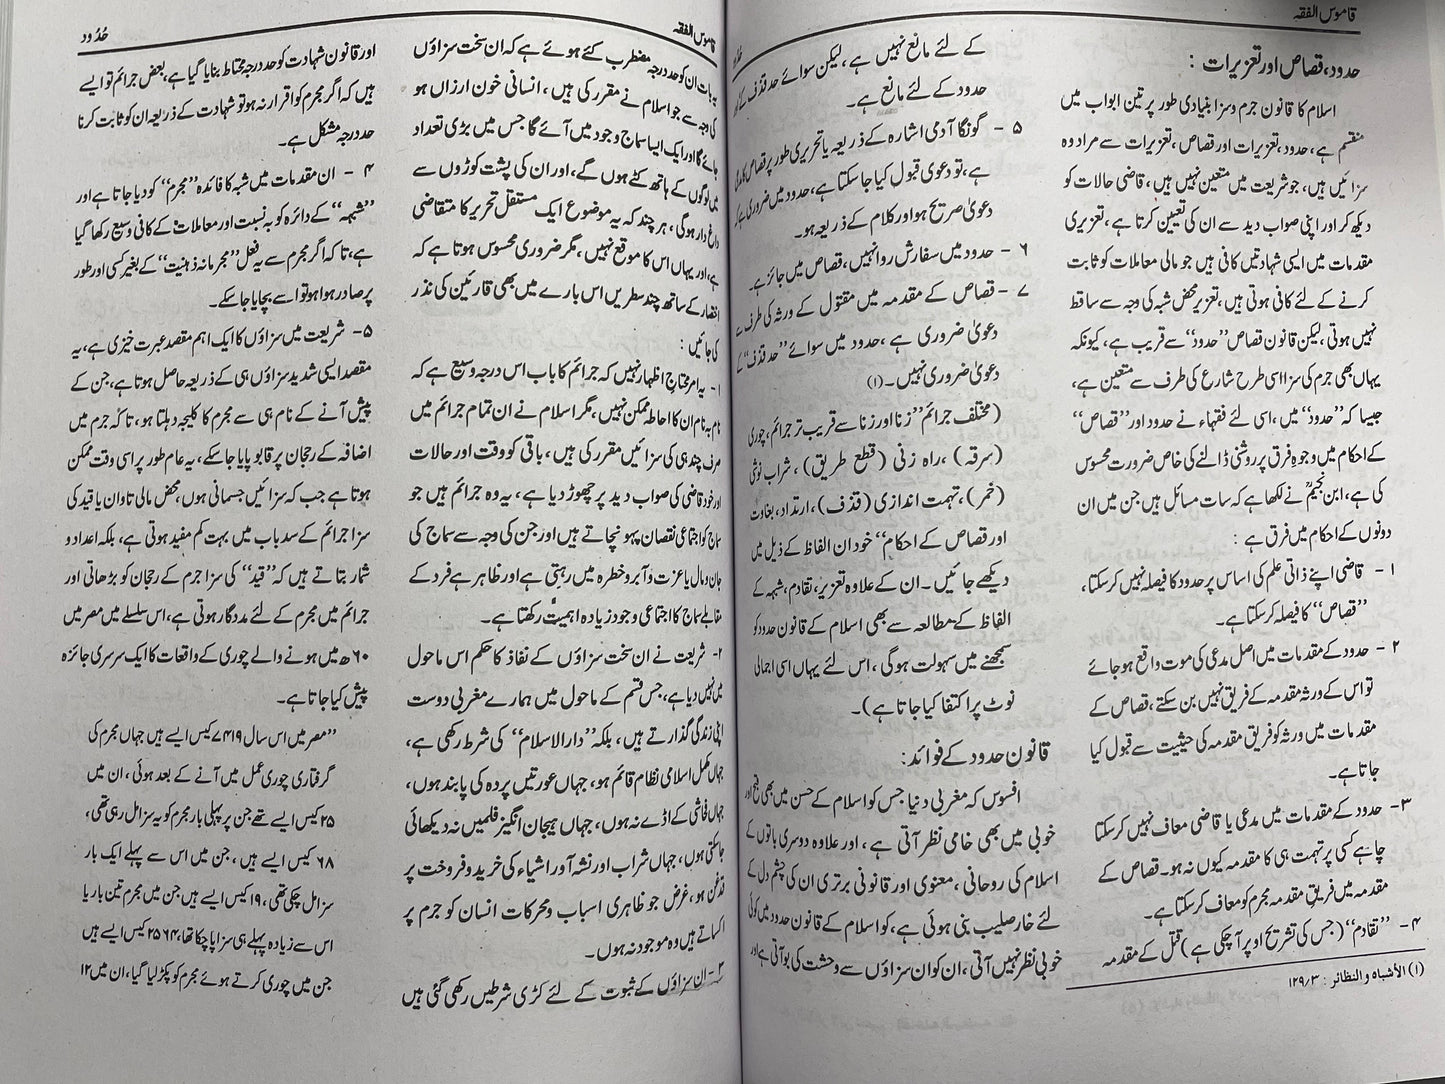 قاموس الفقہ
حدود، قصاص اور تعزیرات :
اسلام کا قانون جرم وسزا بنیادی طور پر تین ابواب میں
منقسم ہے، حدود، تعزیرات اور قصاص، تعزیرات سے مراد وہ
سزائیں ہیں، جو شریعت میں متعین نہیں ہیں، قاضی حالات کو
دیکھ کر اور اپنی صواب دید سے ان کی تعیین کرتا ہے، تعزیری
مقدمات میں ایسی شہادتیں کافی ہیں جو مالی معاملات کو ثابت
کرنے کے لئے کافی ہوتی ہیں، تعزیر محض شبہ کی وجہ سے ساقط
نہیں ہوتی، لیکن قانون قصاص ’’حدود‘‘ سے قریب ہے، کیونکہ
یہاں بھی جرم کی سزا اسی طرح شارع کی طرف سے متعین ہے،
جیسا کہ ’’حدود‘‘ میں، اسی لئے فقہاء نے حدود اور ’’قصاص‘‘
کے احکام میں وجوہِ فرق پر روشنی ڈالنے کی خاص ضرورت محسوس
کی ہے، ابن نجیمؒ نے لکھا ہے کہ سات مسائل ہیں جن میں ان
دونوں کے احکام میں فرق ہے :
۱ - قاضی اپنے ذاتی علم کی اساس پر حدود کا فیصلہ نہیں کر سکتا،
’’قصاص‘‘ کا فیصلہ کر سکتا ہے۔
۲ - حدود کے مقدمات میں اصل مدعی کی موت واقع ہو جائے
تو اس کے ورثہ مقدمہ کے فریق نہیں بن سکتے، قصاص کے
مقدمات میں ورثہ کو فریق مقدمہ کی حیثیت سے قبول کیا
جاتا ہے۔
۳ - حدود کے مقدمات میں مدعی یا قاضی معاف نہیں کر سکتا
چاہے کسی پر تہمت ہی کا مقدمہ کیوں نہ ہو۔ قصاص کے
مقدمہ میں فریقِ مقدمہ مجرم کو معاف کر سکتا ہے۔
۴ - ’’تقادم‘‘ (جس کی تشریح اوپر آ چکی ہے) قتل کے مقدمہ
(۱) الأشباہ والنظائر : ۱۲۹/۳
کے لئے مانع نہیں ہے، لیکن سوائے حد قذف کے
حدود کے لئے مانع ہے۔
۵ - گونگا آدمی اشارہ کے ذریعہ یا تحریری طور پر قصاص کا مدعی
ہے، تو دعویٰ قبول کیا جا سکتا ہے، حدود میں ضروری ہے کہ
دعویٰ صریح ہو اور کلام کے ذریعہ ہو۔
۶ - حدود میں سفارش روا نہیں، قصاص میں جائز ہے۔
۷ - قصاص کے مقدمہ میں مقتول کے ورثہ کی طرف سے
دعویٰ ضروری ہے، حدود میں سوائے ’’حد قذف‘‘ کے
دعویٰ ضروری نہیں۔ (۱)
(مختلف جرائم ’’زنا اور زنا سے قریب تر جرائم، چوری
(سرقہ)، راہ زنی (قطع طریق)، شراب نوشی
(خمر)، تہمت اندازی (قذف)، ارتداد، بغاوت
اور قصاص کے احکام‘‘ خود ان الفاظ کے ذیل میں
دیکھے جائیں۔ ان کے علاوہ تعزیر، تقادم، شبہ کے
الفاظ کے مطالعہ سے بھی اسلام کے قانون حدود کو
سمجھنے میں سہولت ہوگی، اس لئے یہاں اسی اجمالی
نوٹ پر اکتفا کیا جاتا ہے)۔
قانون حدود کے فوائد :
افسوس کہ مغربی دنیا جس کو اسلام کے حسن میں بھی قبح اور
خوبی میں بھی خامی نظر آتی ہے، اور علاوہ دوسری باتوں کے
اسلام کی روحانی، معنوی اور قانونی برتری ان کی چشم دل کے
لئے خار صلیب بنی ہوئی ہے، کو اسلام کے قانون حدود میں کوئی
خوبی نظر نہیں آتی، ان کو ان سزاؤں سے وحشت کی بو آتی ہے اور
قاموس الفقہ
حُدُود
یہ بات ان کو حد درجہ مضطرب کئے ہوئے ہے کہ ان سخت سزاؤں
کی وجہ سے جو اسلام نے مقرر کی ہیں، انسانی خون ارزاں ہو
جائے گا اور ایک ایسا سماج وجود میں آئے گا جس میں بڑی تعداد
میں لوگوں کے ہاتھ کٹے ہوں گے، اور ان کی پشت کوڑوں سے
داغ دار ہوگی، ہر چند کہ یہ موضوع ایک مستقل تحریر کا متقاضی
ہے، اور یہاں اس کا موقع نہیں، مگر ضروری محسوس ہوتا ہے کہ
اختصار کے ساتھ چند سطریں اس بارے میں بھی قارئین کی نذر
کی جائیں :
۱ - یہ امر محتاج اظہار نہیں کہ جرائم کا باب اس درجہ وسیع ہے کہ
نام بہ نام ان کا احاطہ ممکن نہیں، مگر اسلام نے ان تمام جرائم میں
صرف چند ہی کی سزائیں مقرر کی ہیں، باقی کو وقت اور حالات
اور خود قاضی کی صواب دید پر چھوڑ دیا ہے، یہ وہ جرائم ہیں جو
سماج کو اجتماعی نقصان پہونچاتے ہیں اور جن کی وجہ سے سماج کی
جان و مال یا عزت و آبرو خطرہ میں رہتی ہے اور ظاہر ہے فرد کے
مقابلے سماج کا اجتماعی وجود زیادہ اہمیت رکھتا ہے۔
۲ - شریعت نے ان سخت سزاؤں کے نفاذ کا حکم اس ماحول
میں نہیں دیا ہے، جس قسم کے ماحول میں ہمارے مغربی دوست
اپنی زندگی گذارتے ہیں، بلکہ ’’دارالاسلام‘‘ کی شرط رکھی ہے،
جہاں مکمل اسلامی نظام قائم ہو، جہاں عورتیں پردہ کی پابند ہوں،
جہاں فحاشی کے اڈے نہ ہوں، جہاں ہیجان انگیز فلمیں نہ دیکھائی
جا سکتی ہوں، جہاں شراب اور نشہ آور اشیاء کی خرید و فروخت پر
قدغن ہو، غرض جو ظاہری اسباب و محرکات انسان کو جرم پر
اکساتے ہیں وہ موجود نہ ہوں۔
۳ - ان سزاؤں کے ثبوت کے لئے کڑی شرطیں رکھی گئی ہیں
اور قانون شہادت کو حد درجہ محتاط بنایا گیا ہے، بعض جرائم تو ایسے
ہیں کہ اگر مجرم کو اقرار نہ ہو تو شہادت کے ذریعہ ان کو ثابت کرنا
حد درجہ مشکل ہے۔
۴ - ان مقدمات میں شبہ کا فائدہ ’’مجرم‘‘ کو دیا جاتا ہے اور
’’شبہہ‘‘ کے دائرہ کو بہ نسبت اور معاملات کے کافی وسیع رکھا گیا
ہے، تاکہ اگر مجرم سے یہ فعل ’’مجرمانہ ذہنیت‘‘ کے بغیر کسی اور طور
پر صادر ہوا ہو تو اسے بچایا جا سکے۔
۵ - شریعت میں سزاؤں کا ایک اہم مقصد عبرت خیزی ہے، یہ
مقصد ایسی شدید سزاؤں ہی کے ذریعہ حاصل ہوتا ہے، جن کے
پیش آنے کے نام ہی سے مجرم کا کلیجہ دہلتا ہو، تاکہ جرم میں
اضافہ کے رجحان پر قابو پایا جا سکے، یہ عام طور پر اسی وقت ممکن
ہوتا ہے جب کہ سزائیں جسمانی ہوں، محض مالی تاوان یا قید کی
سزا جرائم کے سد باب میں بہت کم مفید ہوتی ہے، بلکہ اعداد و
شمار بتاتے ہیں کہ ’’قید‘‘ کی سزا جرم کے رجحان کو بڑھاتی اور
جرائم میں مجرم کے لئے مددگار ہوتی ہے، اس سلسلے میں مصر میں
۶۰ھ میں ہونے والے چوری کے واقعات کا ایک سرسری جائزہ
پیش کیا جاتا ہے۔
’’مصر میں اس سال ۷۴۱۹ کیس ایسے ہیں جہاں مجرم کی
گرفتاری چوری عمل میں آنے کے بعد ہوئی، ان میں
۲۵ کیس ایسے تھے جن پر پہلی بار مجرم کو یہ سزا مل رہی تھی،
۶۸ کیس ایسے ہیں، جن میں اس سے پہلے ایک بار
سزا مل چکی تھی، ۱۹۰ کیس ایسے ہیں جن میں مجرم تین بار یا
اس سے زیادہ پہلے ہی سزا پا چکا تھا، ۲۵۶۴ کیس ایسے ہیں
جن میں چوری کرتے ہوئے مجرم کو پکڑ لیا گیا، ان میں ۱۲